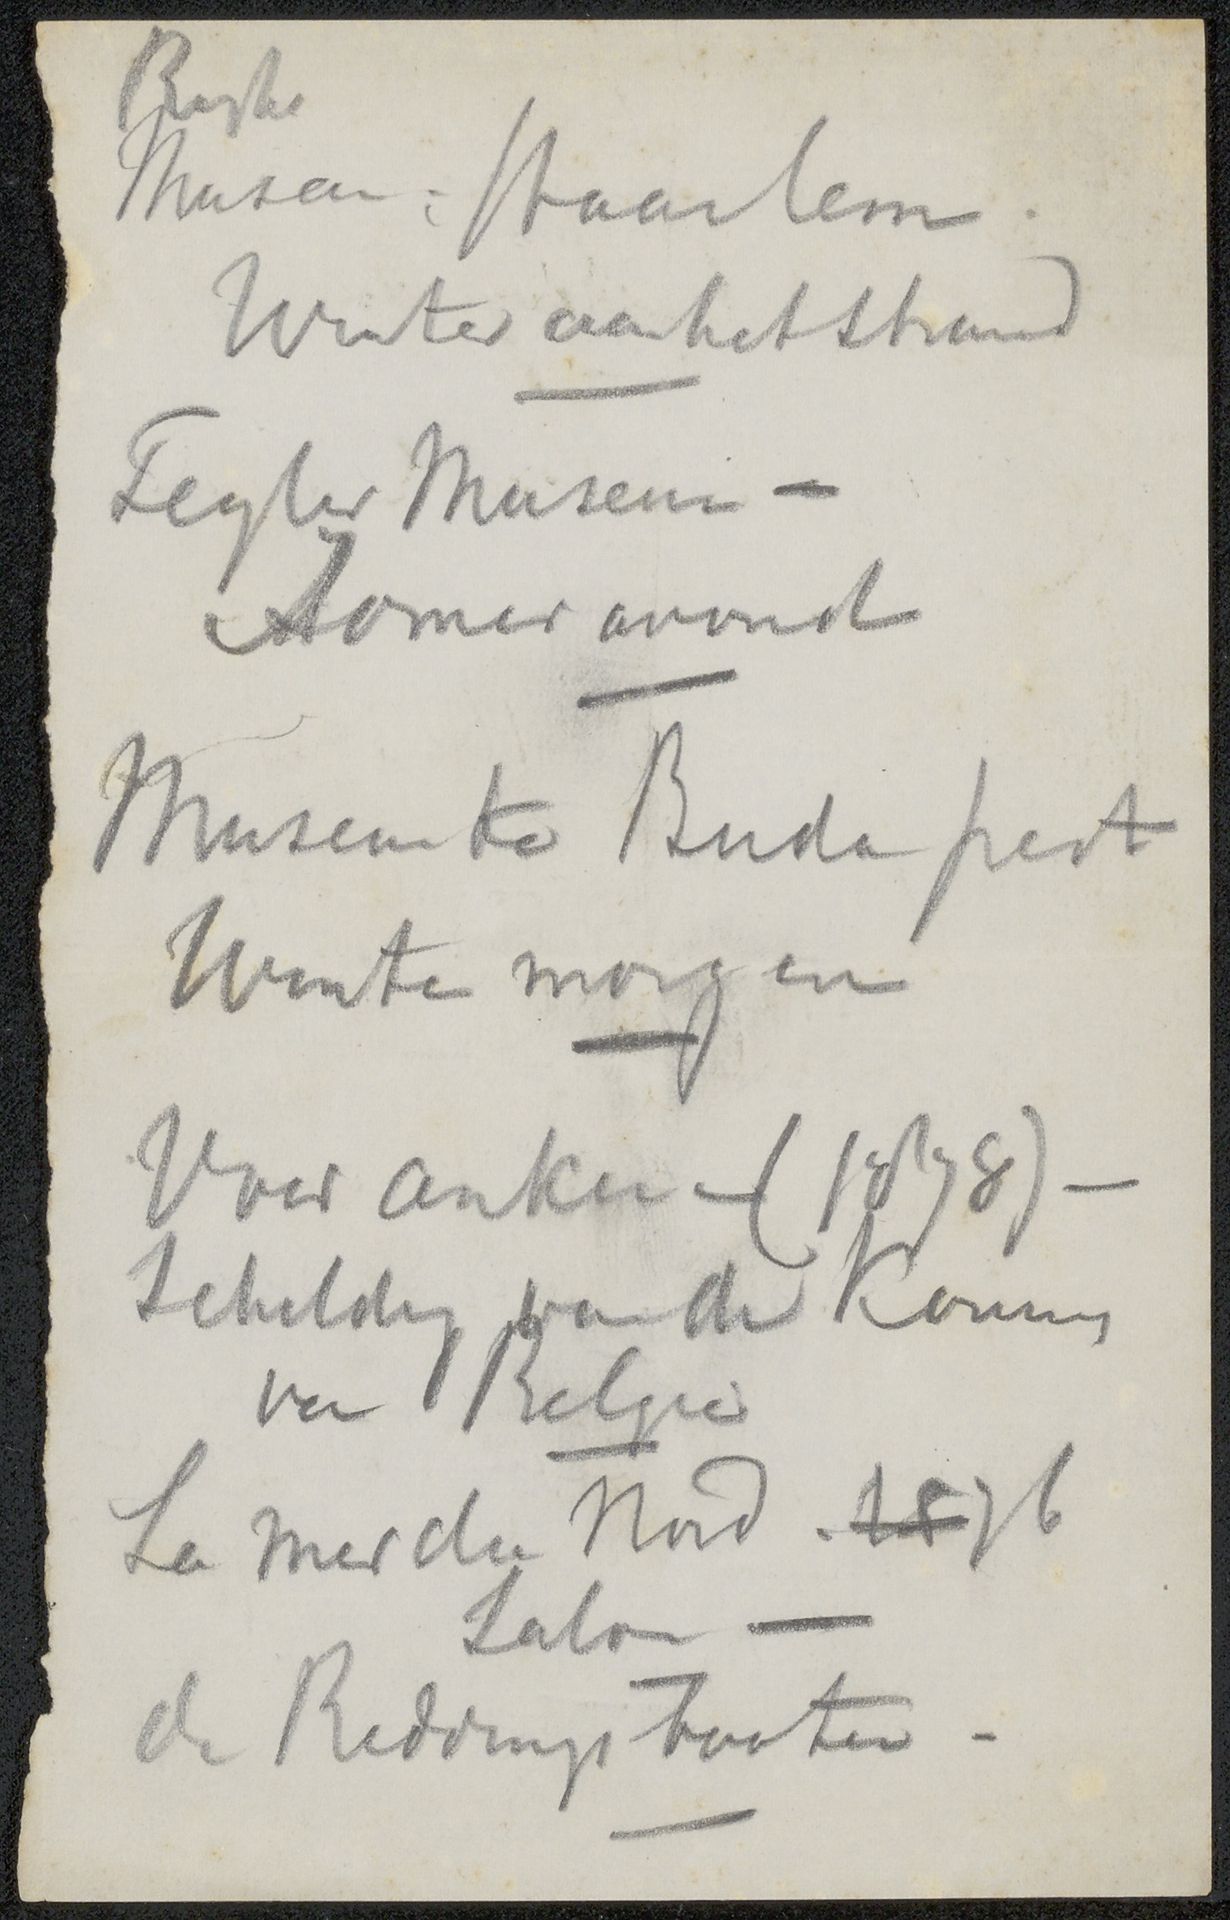 Museum: Haarlem.
Winter aan het strand
Teyler Museum -
Zomer avond
Museum te Buda pest
Winter morgen
Voor anker - (1878) -
Schildery van de Koning
van Belgie
La mer du Nord . 1876
Salon —
de Reddings booten -